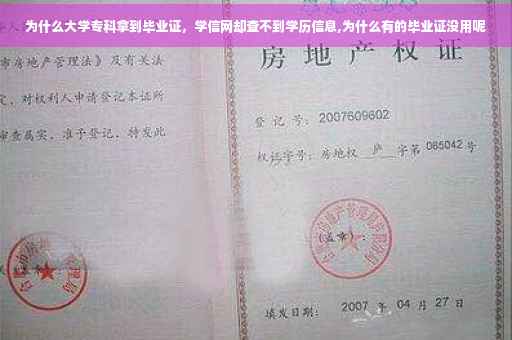 为什么大学专科拿到毕业证，学信网却查不到学历信息,为什么有的毕业证没用呢
市房地产管理法》及有关法
定，对权利人申请登记本证所
审查属实，准予登记，特发此
房地产权
登记号：2007609602
权证字号：房地权 庐 字第 065042 号
(盖章)：
填发日期：2007 年 04 月 27 日